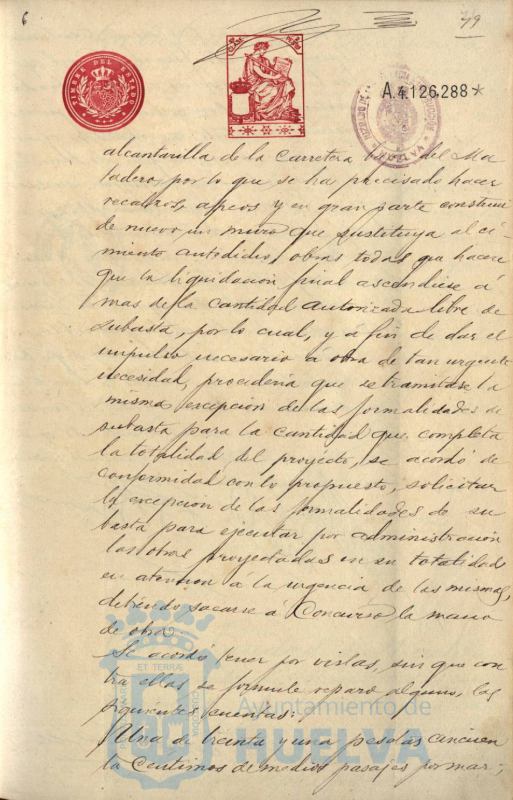 6
79
TIMBRE DEL ESTADO
A.4.126.288*
alcantarilla de la Carretera del Ma
tadero, por lo que se ha precisado hacer
recalzos, apeos y en gran parte construir
de nuevo un muro que sustituya al ci-
miento antedicho, obras todas que hacen
que la liquidación final ascendiese á
mas de la cantidad autorizada libre de
subasta, por lo cual, y á fin de dar el
impulso necesario á obra de tan urgente
necesidad, procedería que se tramitase la
misma excepción de las formalidades de
subasta para la cantidad que completa
la totalidad del proyecto, se acordó de
conformidad con lo propuesto, solicitar
la excepción de las formalidades de su
basta para ejecutar por administración
las obras proyectadas en su totalidad
en atencion a la urgencia de las mismas,
debiendo sacarse á Concurso la mano
de obra.
Se acordó tener por vistas, sin que con
tra ellas se formule reparo alguno, las
siguientes cuentas:
Una de treinta y una pesetas cincuen
ta Centimos de medios pasajes por mar;
ET TERRÆ
Ayuntamiento de
HUELVA